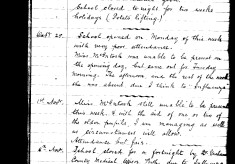 School closed to-night for two weeks
holidays (Potato lifting).
Oct 28. School opened on Monday of this week
with very poor attendance.
Miss McIntosh was unable to be present on
the opening day, but came out for Tuesday
morning. The afternoon and the rest of the week
she was absent due, I think to Influenza.
1st Nov. Miss McIntosh still unable to be present
this week. I with the aid of one or two of
the older pupils, I am managing as well
as circumstances will allow.
Attendance but fair.
6th Nov. School closed for a fortnight by Dr.
County Medical Officer due to Influenza